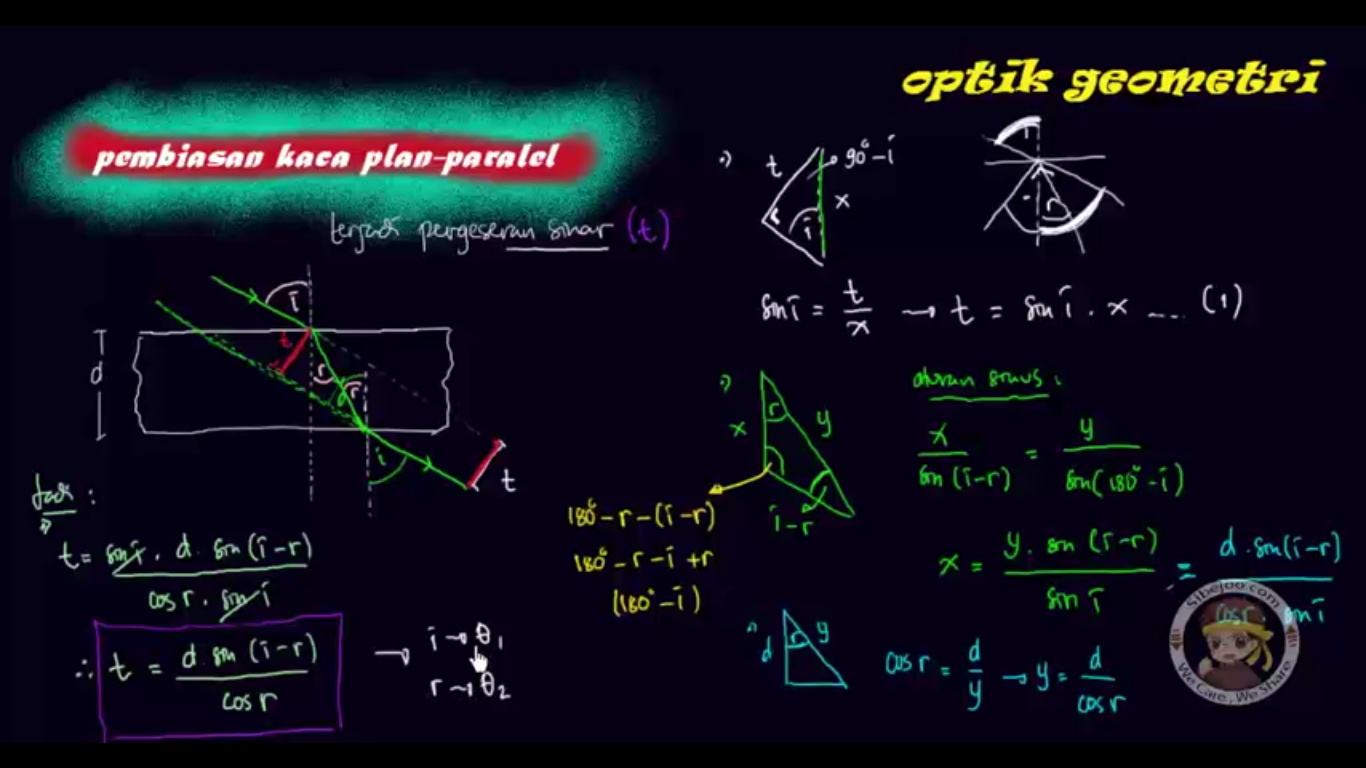 optik geometri
pembiasan kaca plan-paralel
terjadi pergeseran sinar (t)
i
t
r
r
d
i
t
Jadi :
t = sin i . d . sin (i-r)
cos r . sin i
∴ t = d . sin (i-r)
cos r
→ i → θ1
r → θ2
t
90° - i
x
i
i
r
sin i = t/x → t = sin i . x .... (1)
x
r
y
i-r
180° - r - (i-r)
180° - r - i + r
(180° - i)
aturan sinus :
x / sin (i-r) = y / sin (180° - i)
x = y . sin (i-r) / sin i = d . sin (i-r) / cos r . sin i
d
r
y
cos r = d/y → y = d / cos r
Sibejoo.com
We Care, We Share